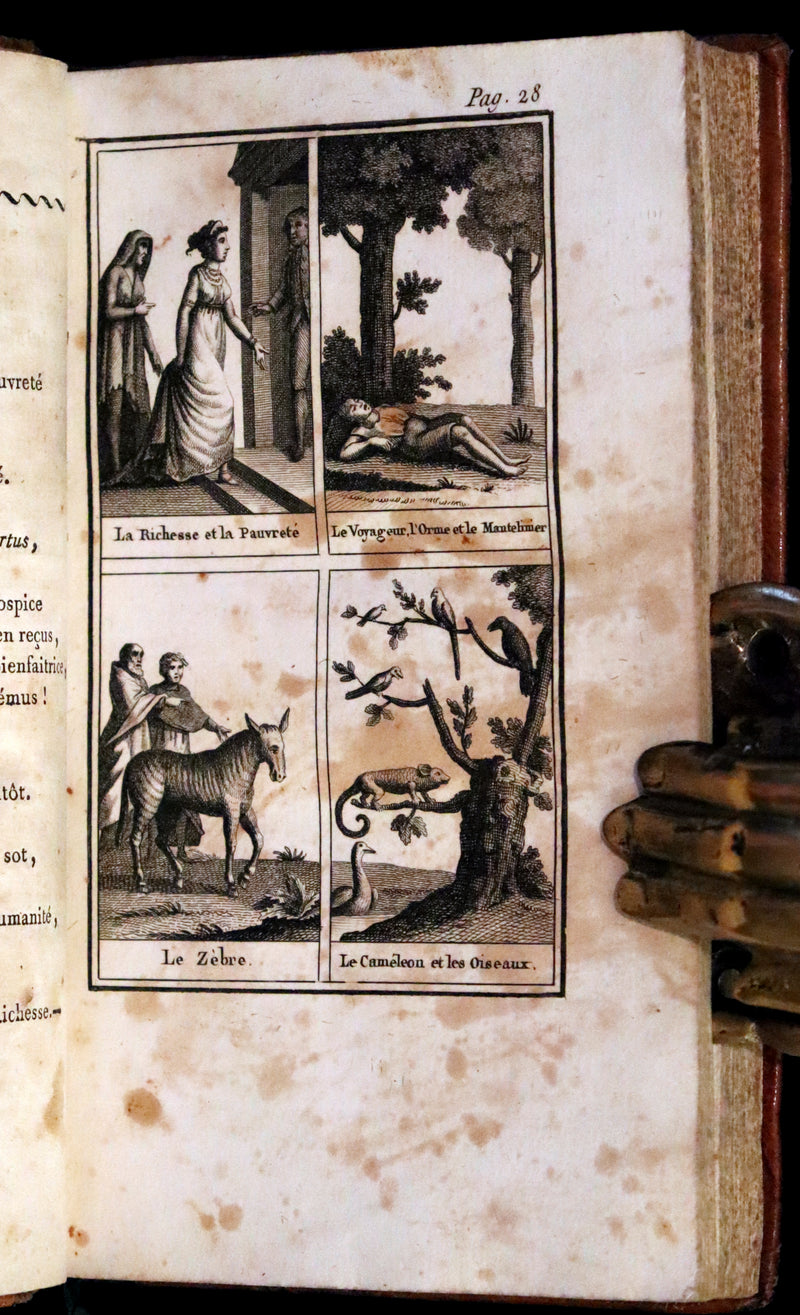 uvreté
é.
rtus,
ospice
en reçus,
ienfaitrice,
émus !
tôt.
sot,
umanité,
ichesse.—
Pag. 28
La Richesse et la Pauvreté
Le Voyageur, l'Orme et le
Le Zèbre.
Le Caméleon et les Oiseaux.